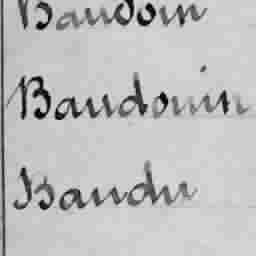 Baudoin
Baudouin
Baudu